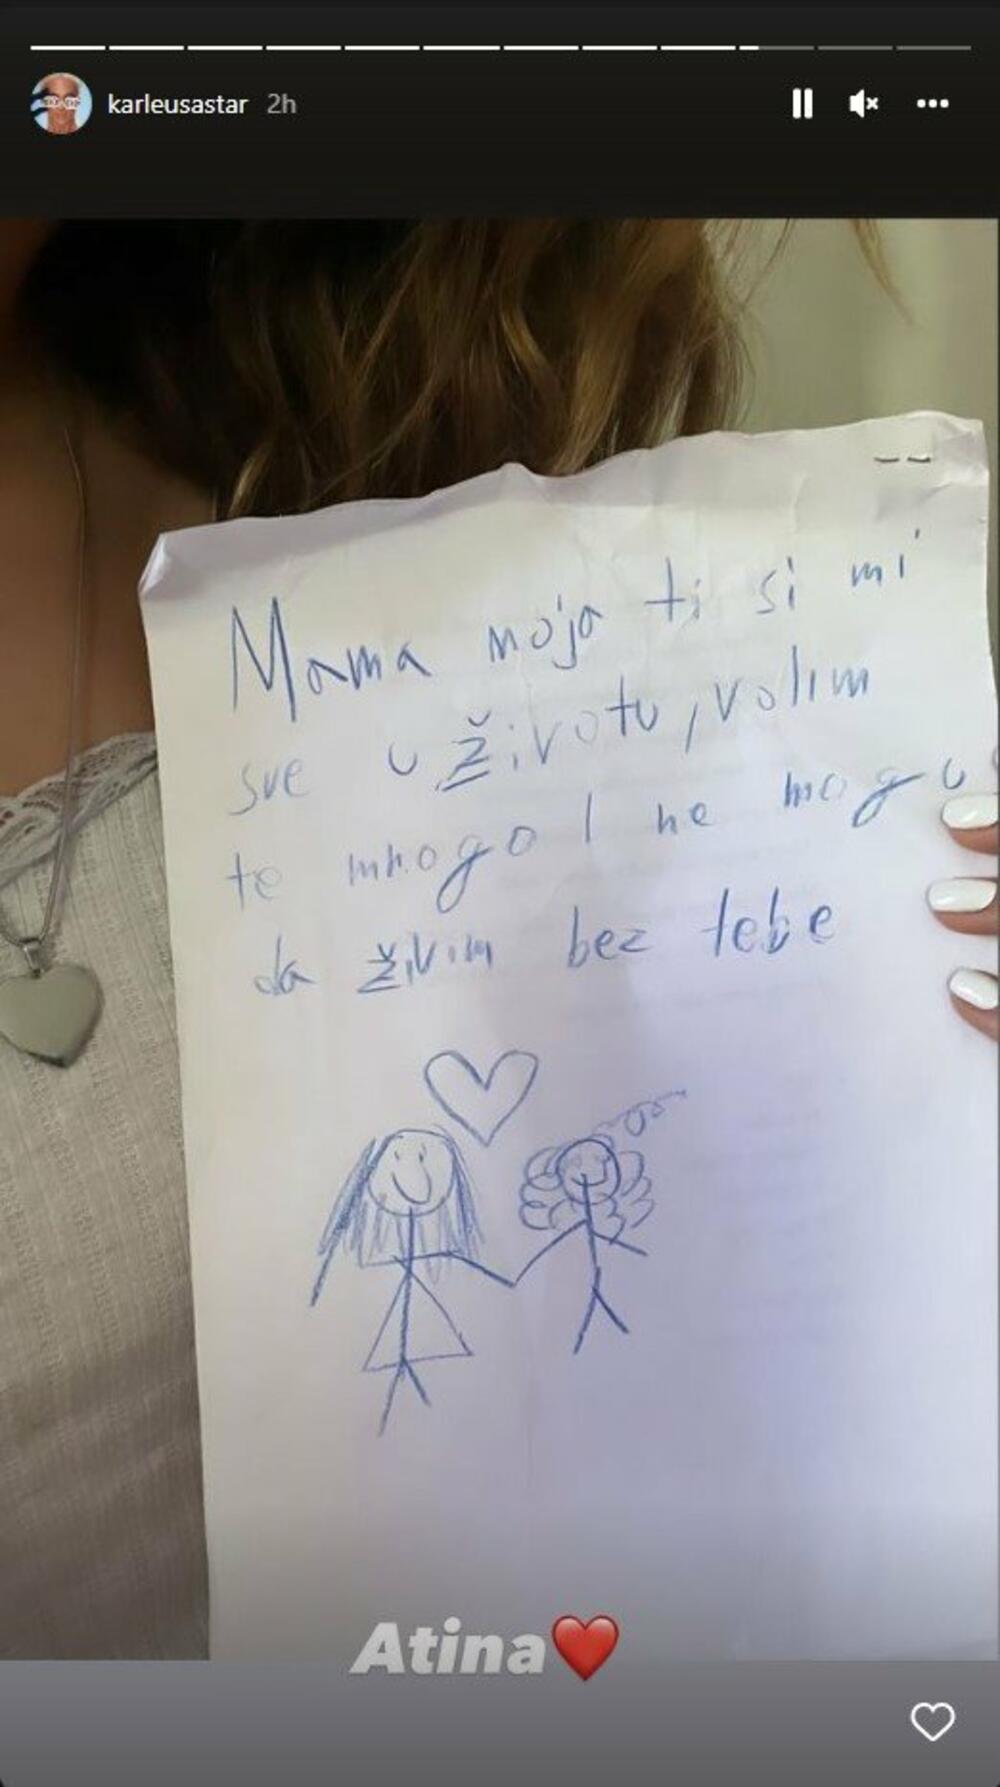 karleusastar 2h
Mama moja ti si mi
sve u životu, volim
te mnogo I ne mogu
da živim bez tebe
Atina❤️